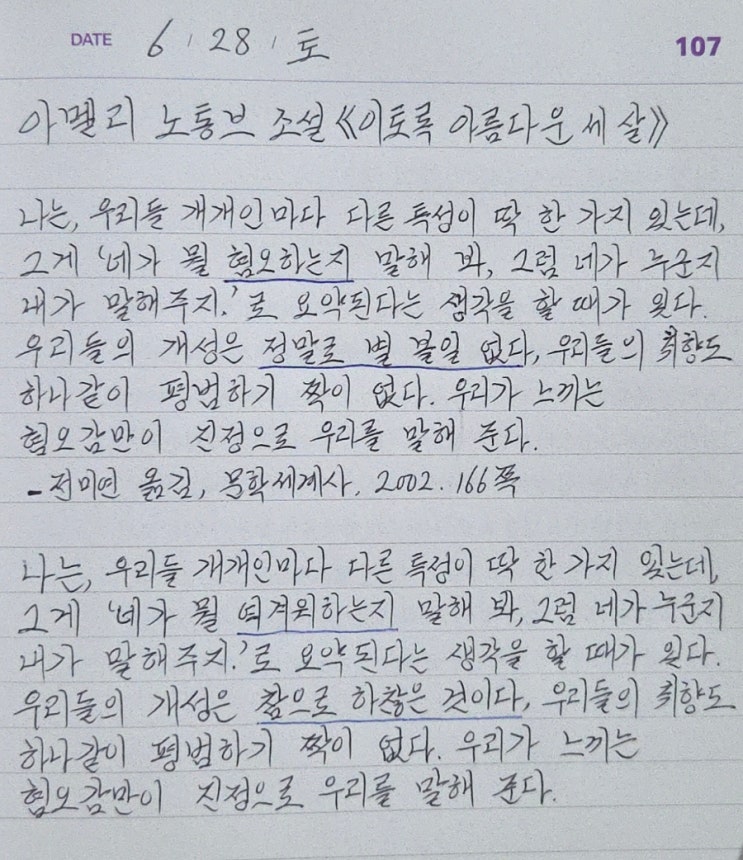 DATE 6 / 28 / 토 107
아멜리 노통브 소설 《이토록 아름다운 세 살》
나는, 우리들 개개인마다 다른 특성이 딱 한 가지 있는데,
그게 '네가 뭘 혐오하는지 말해 봐, 그럼 네가 누군지
내가 말해주지.'로 요약된다는 생각을 할 때가 있다.
우리들의 개성은 정말로 별 볼일 없다, 우리들의 취향도
하나같이 평범하기 짝이 없다. 우리가 느끼는
혐오감만이 진정으로 우리를 말해 준다.
- 전미연 옮김, 문학세계사, 2002. 166쪽
나는, 우리들 개개인마다 다른 특성이 딱 한 가지 있는데,
그게 '네가 뭘 역겨워하는지 말해 봐, 그럼 네가 누군지
내가 말해주지.'로 요약된다는 생각을 할 때가 있다.
우리들의 개성은 참으로 하찮은 것이다, 우리들의 취향도
하나같이 평범하기 짝이 없다. 우리가 느끼는
혐오감만이 진정으로 우리를 말해 준다.